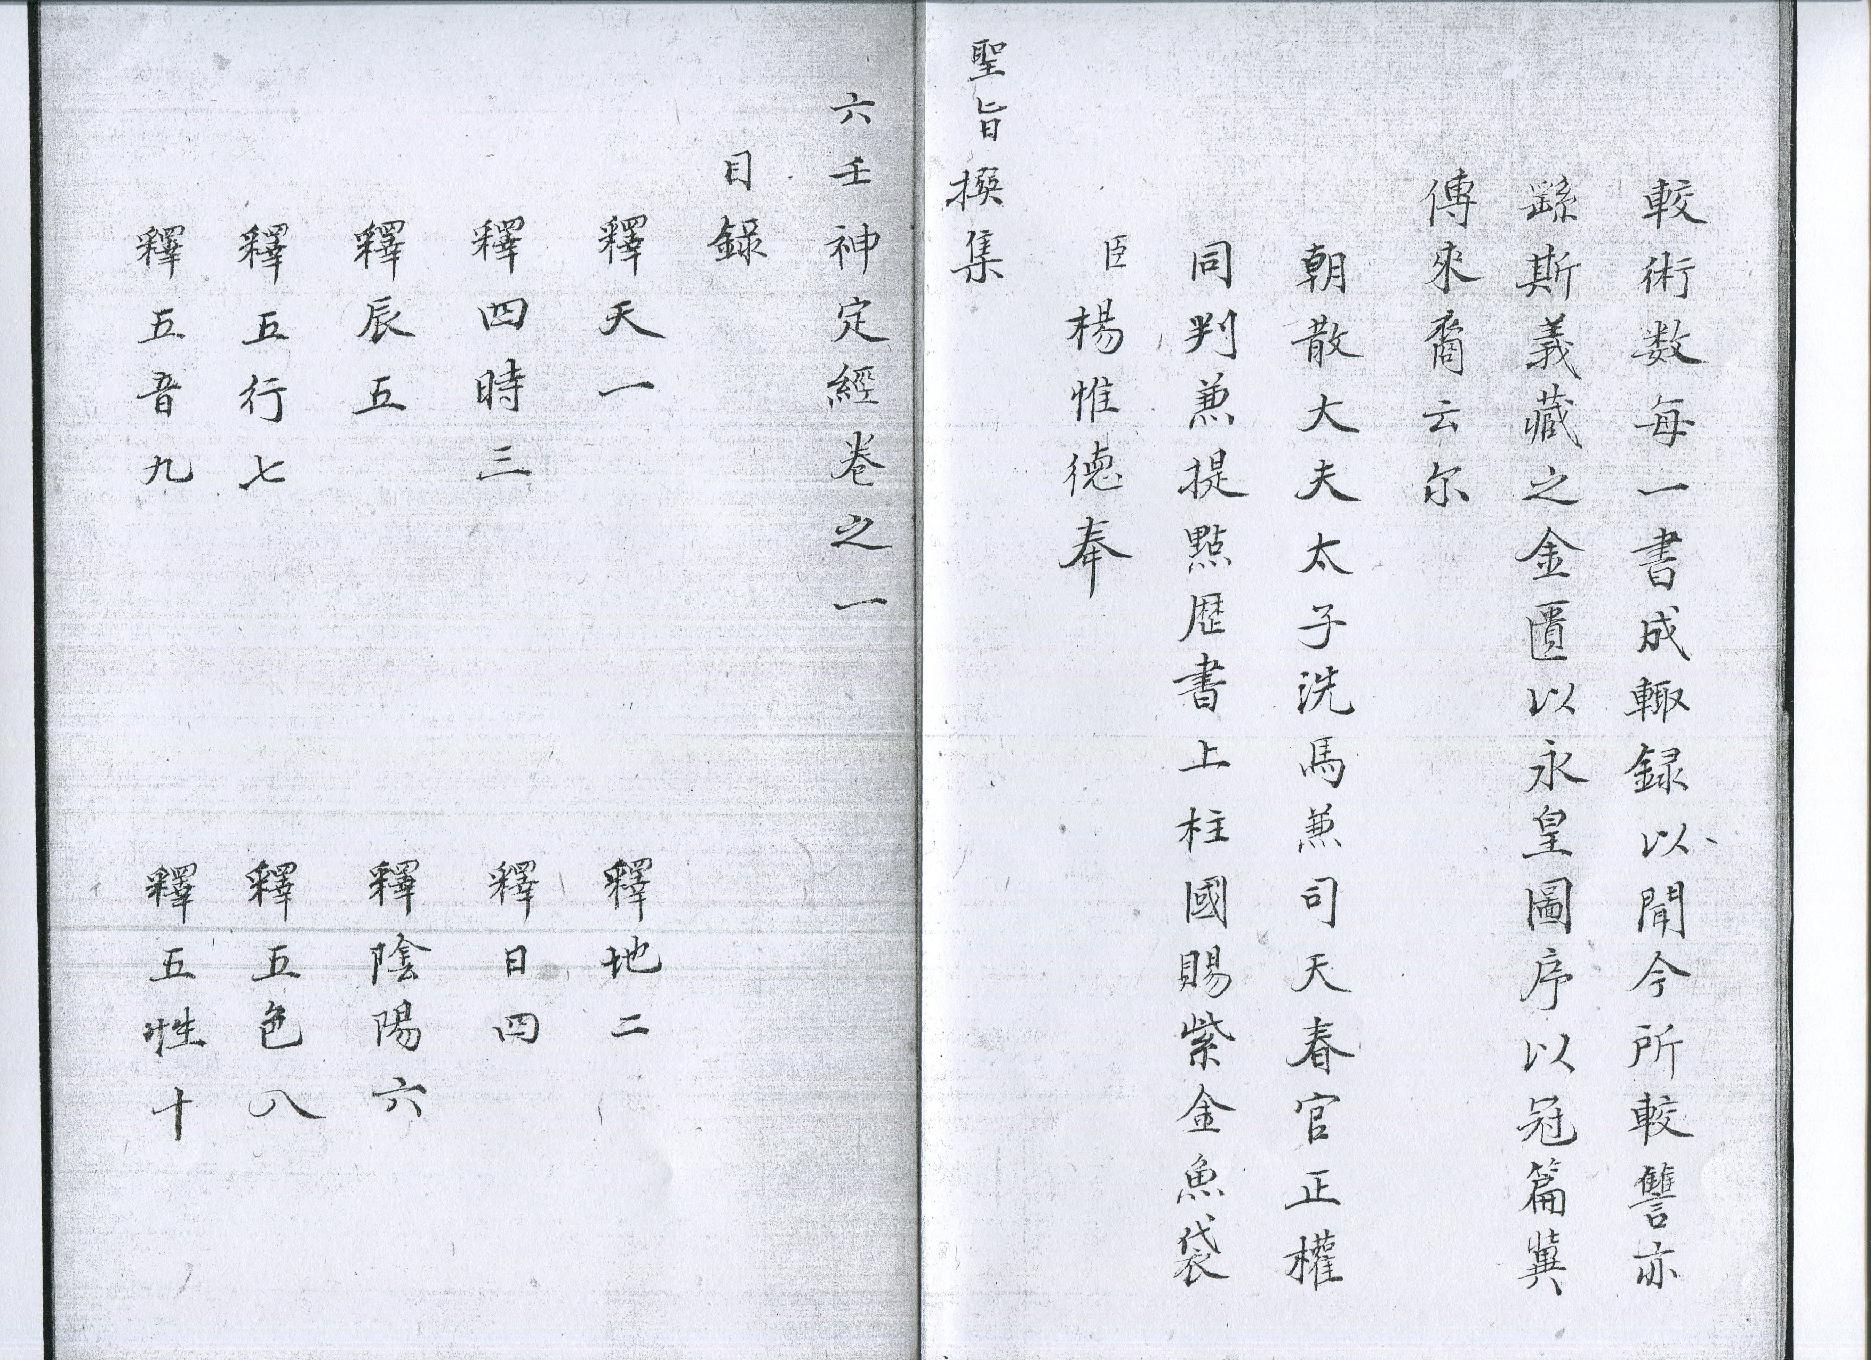 較術数每一書成輙録以聞今所較讐亦
繇斯義藏之金匱以永皇圖序以冠篇冀
傳來裔云尔
朝散大夫太子洗馬兼司天春官正權
同判兼提點歴書上柱國賜紫金魚袋
臣楊惟德奉
聖旨撰集
六壬神定經卷之一
目錄
釋天一 釋地二
釋四時三 釋日四
釋辰五 釋陰陽六
釋五行七 釋五色八
釋五音九 釋五性十